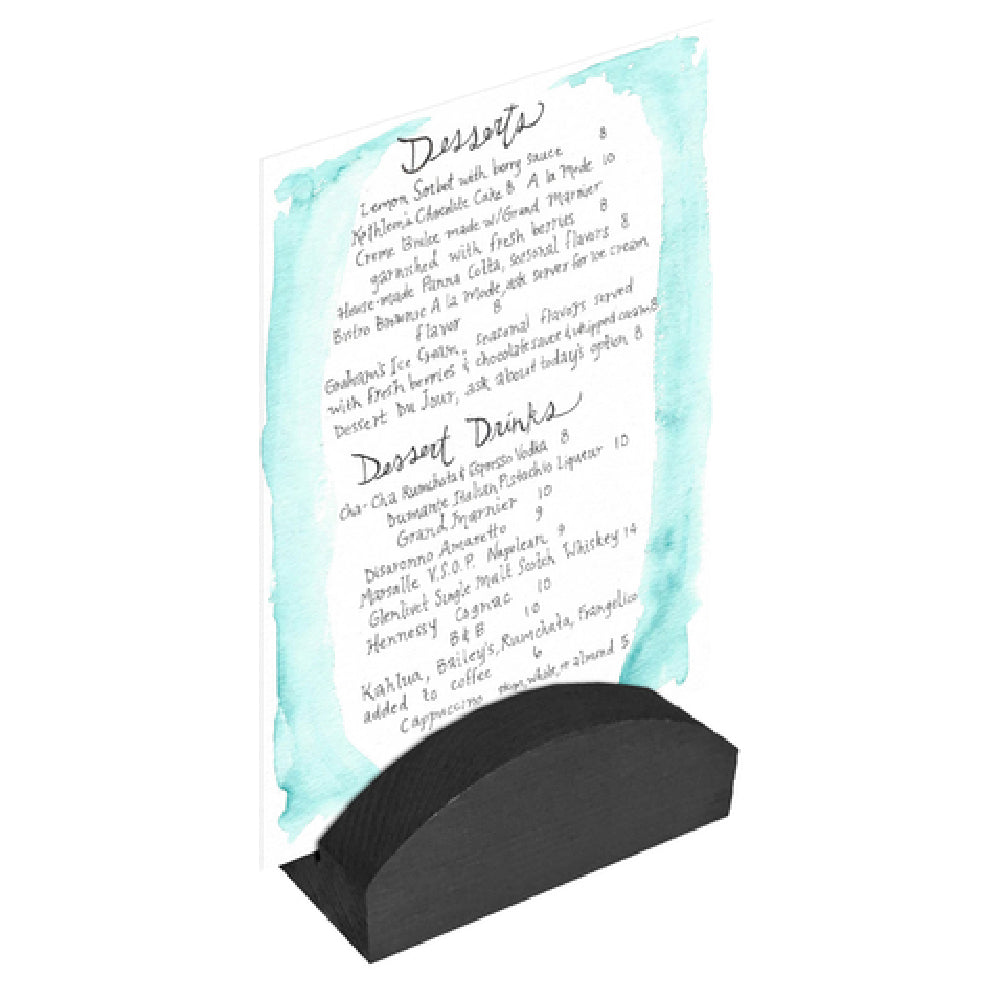 Desserts
Lemon Sorbet with berry sauce 8
Kathleen's Chocolate Cake 8 A la Mode 10
Creme Brulee made w/Grand Marnier
garnished with fresh berries 8
House-made Panna Cotta, seasonal flavors 8
Bistro Brownie A la Mode, ask server for ice cream
flavor 8
Graham's Ice Cream, seasonal flavors served
with fresh berries & chocolate sauce & whipped cream 8
Dessert Du Jour, ask about today's option 8
Dessert Drinks
Cha-Cha Rumchata & Espresso Vodka 8
Dumante Italian Pistachio Liqueur 10
Grand Marnier 10
Disaronno Amaretto 9
Marsalle V.S.O.P. Napolean 9
Glenlivet Single Malt Scotch Whiskey 14
Hennessy Cognac 10
B&B 10
Kahlua, Bailey's, Rumchata, Frangelico
added to coffee 6
Cappuccino skim, whole, or almond 5